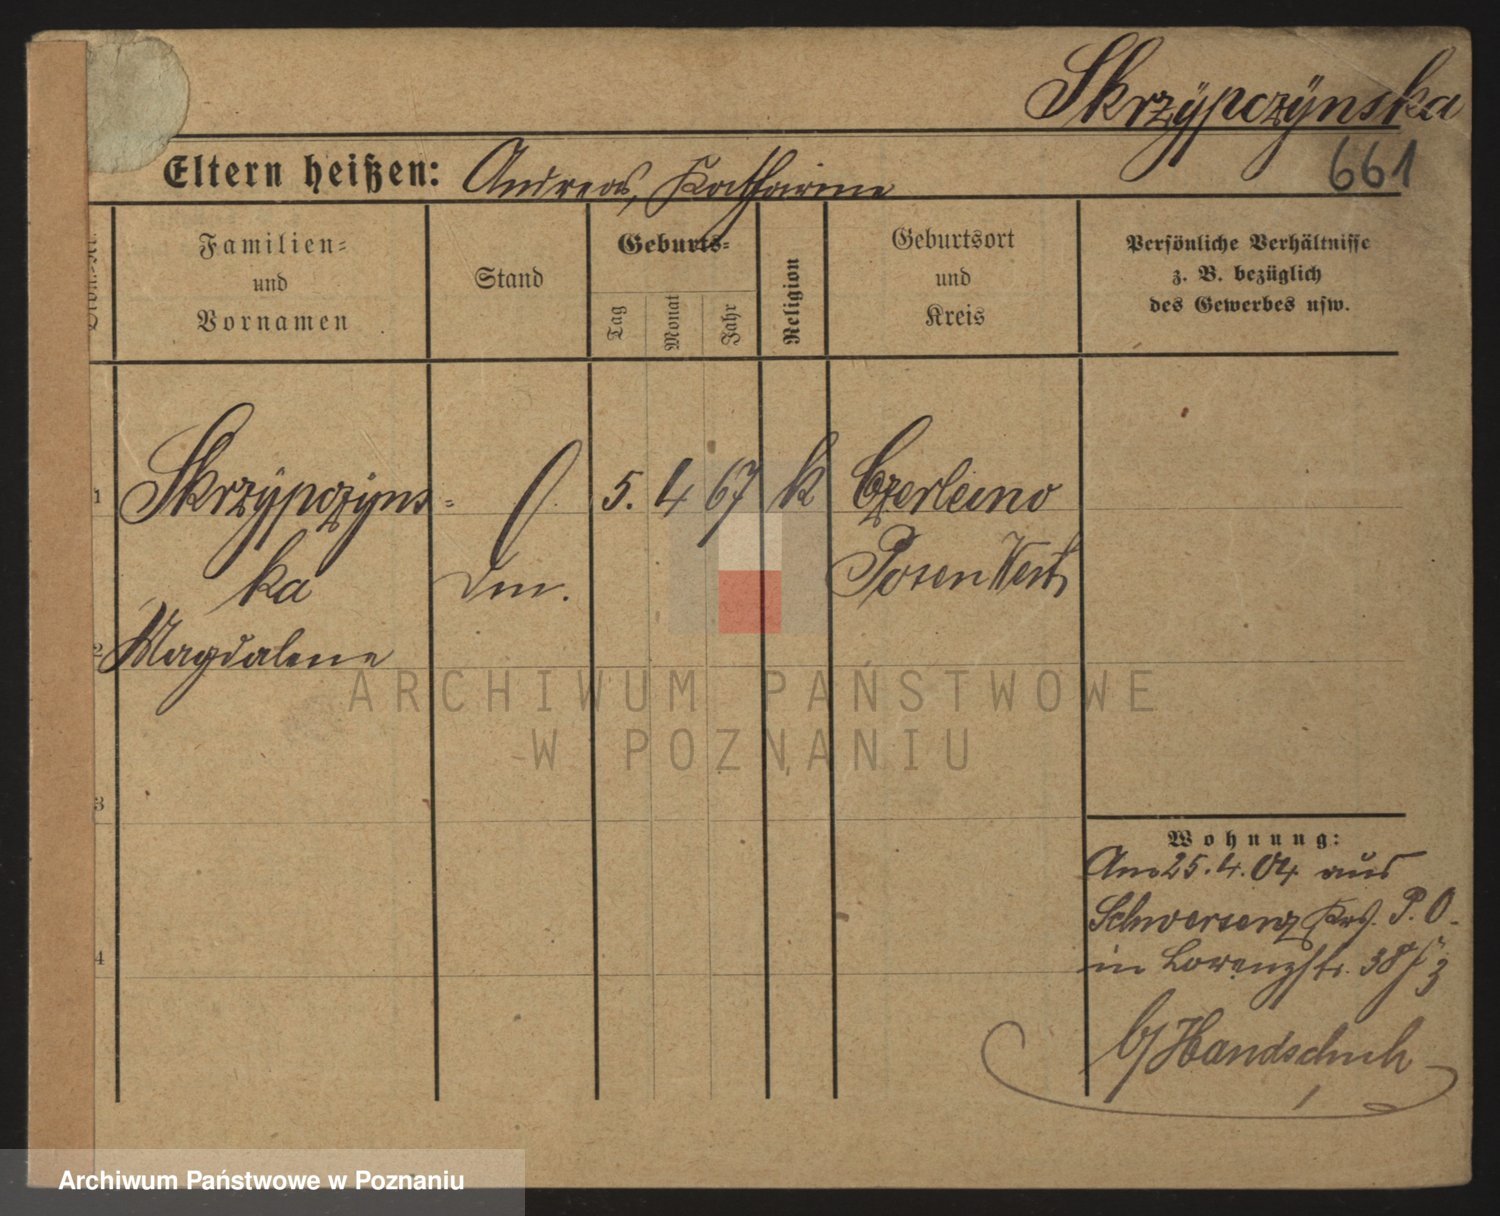 Skrzÿpczÿnska
661
Eltern heißen: Andreas, Katharine
Familien=
und
Vornamen
Stand
Geburts=
Tag
Monat
Jahr
Religion
Geburtsort
und
Kreis
Persönliche Verhältnisse
z. B. bezüglich
des Gewerbes usw.
1 Skrzÿpczÿns= 5. 4 67 k Czerleino
ka Posen West
2 Magdalene
3
4
Wohnung:
Am 25.4.04 aus
Schwersenz Krs. P. O.
in Lorenzstr. 38
b/ Handschuh
ARCHIWUM PAŃSTWOWE
W POZNANIU
Archiwum Państwowe w Poznaniu